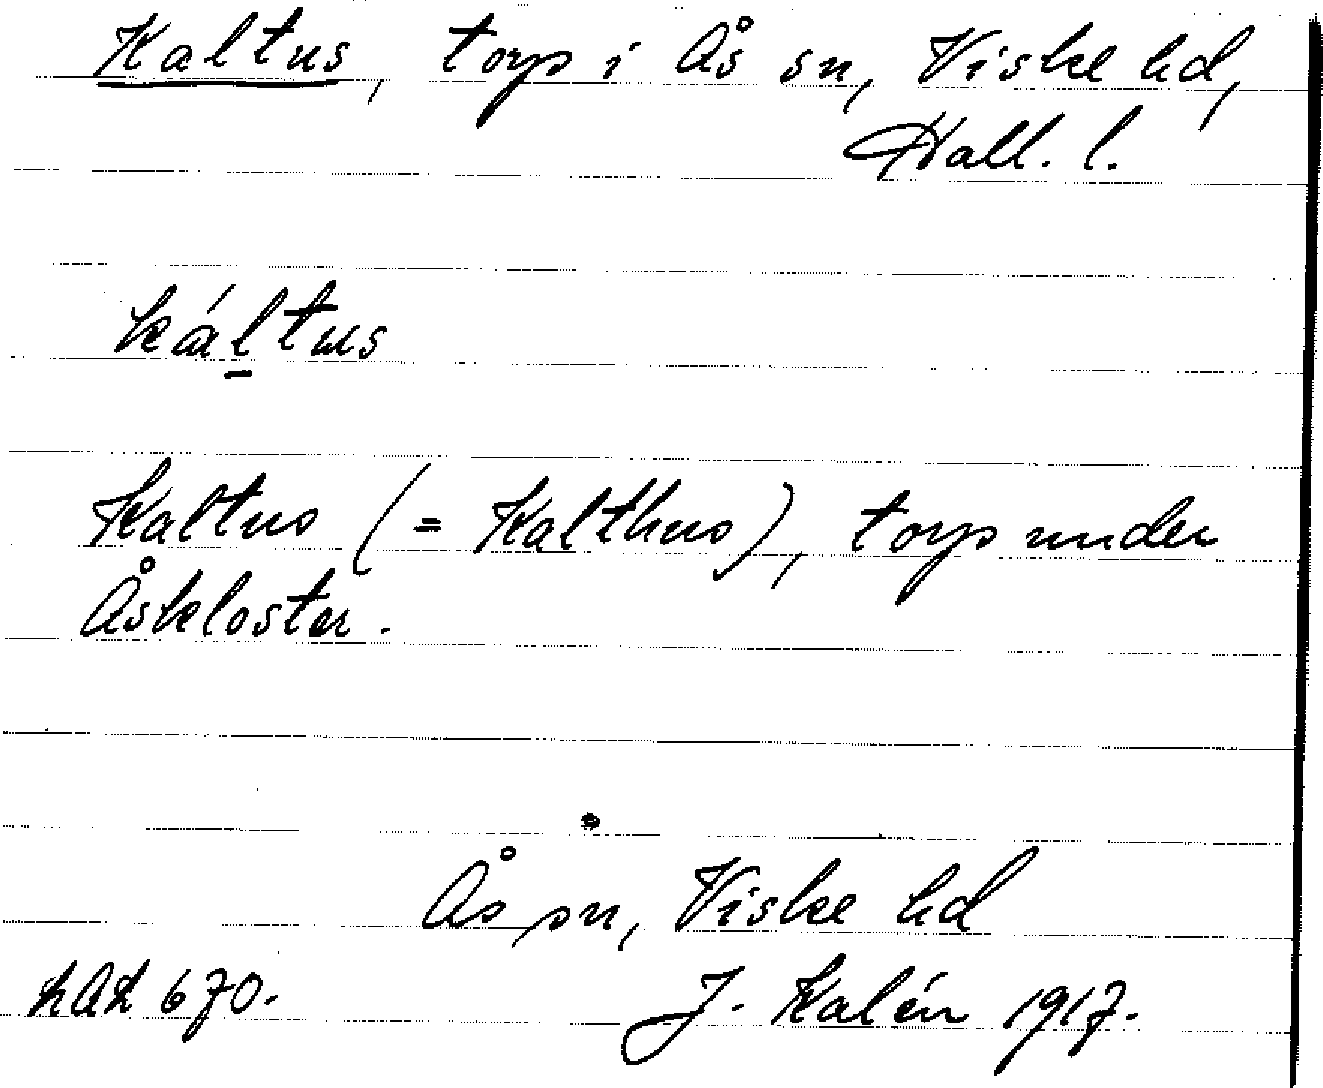 Kaltus, torp i Ås sn, Viske hd,
Hall. l.
káltus
Kaltus (= Kalthus), torp under
Åskloster.
Ås sn, Viske hd
J. Kalén 1917.
670.